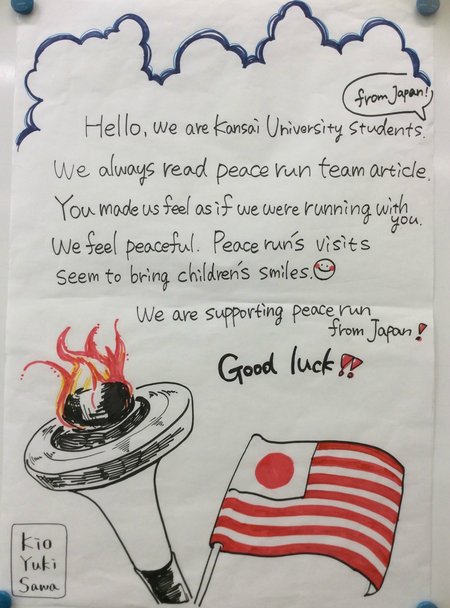 from Japan!
Hello, we are Kansai University students.
We always read peace run team article.
You made us feel as if we were running with you.
We feel peaceful. Peace run's visits
seem to bring children's smiles.
We are supporting peace run
from Japan!
Good luck!!
Kio
Yuki
Sawa